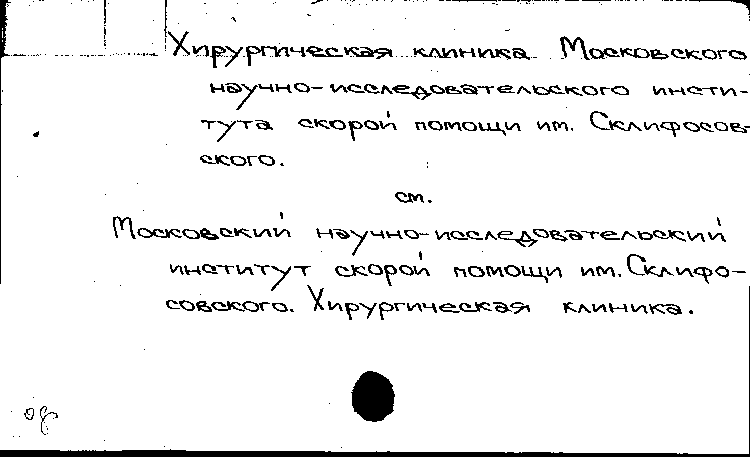 Хирургическая клиника Московского
научно-исследовательского инсти-
тута скорой помощи им. Склифосов-
ского.
см.
Московский научно-исследовательский
институт скорой помощи им. Склифо-
совского. Хирургическая клиника.